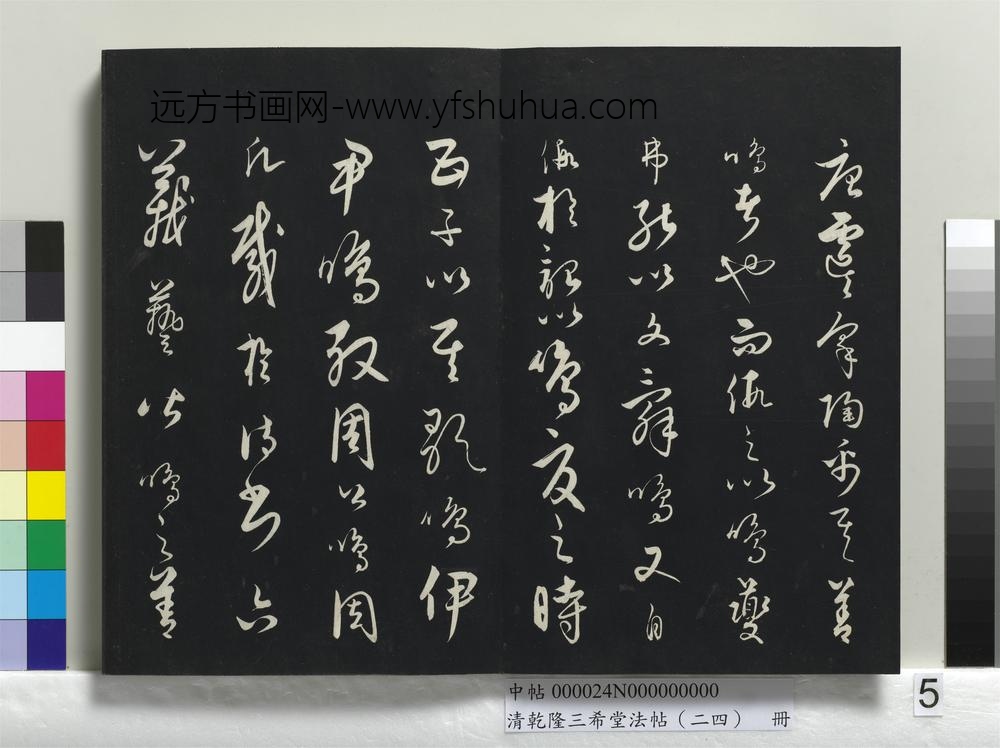 远方书画网-www.yfshuhua.com
唐虞皋陶禹其善
鳴者也而假之以鳴夔
弗能以文辭鳴又自
假於韶以鳴夏之時
五子以其歌鳴伊
尹鳴殷周公鳴周
凡載於詩書六
義藝皆鳴之善
中帖 000024N000000000
清乾隆三希堂法帖（二四） 冊
5